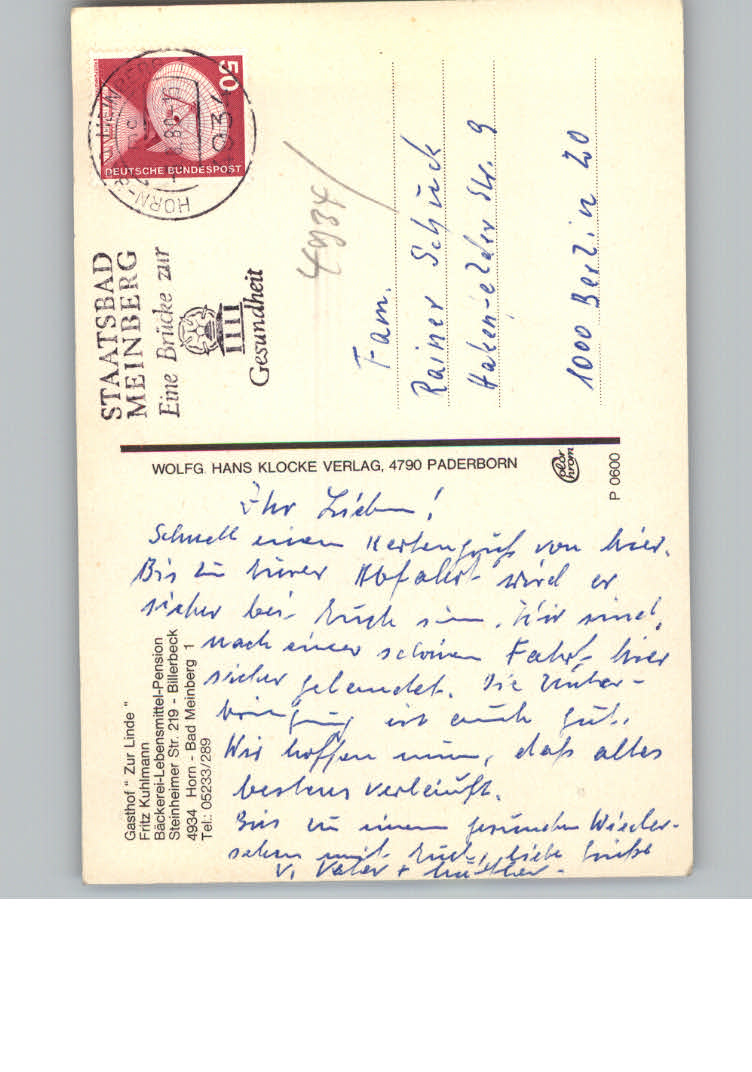 50
DEUTSCHE BUNDESPOST
STAATSBAD
MEINBERG
Eine Brücke zur
Gesundheit
4934
Fam.
Rainer Schuck
Str. 9
1000 Berlin 20
WOLFG. HANS KLOCKE VERLAG, 4790 PADERBORN
color
chrom
P 0600
Ihr Lieben!
Schnell einen Kartengruß von hier.
Bis zu Eurer Abfahrt wird er
sicher bei Euch sein. Wir sind,
nach einer schönen Fahrt hier
sicher gelandet. Die Unter-
bringung ist auch gut.
Wir hoffen nun, daß alles
bestens verläuft.
Bis zu einem gesunden Wieder-
sehen mit Euch, liebe Grüße
v. Vater + Mutter.
Gasthof " Zur Linde "
Fritz Kuhlmann
Bäckerei-Lebensmittel-Pension
Steinheimer Str. 219 - Billerbeck
4934 Horn - Bad Meinberg 1
Tel.: 05233/289